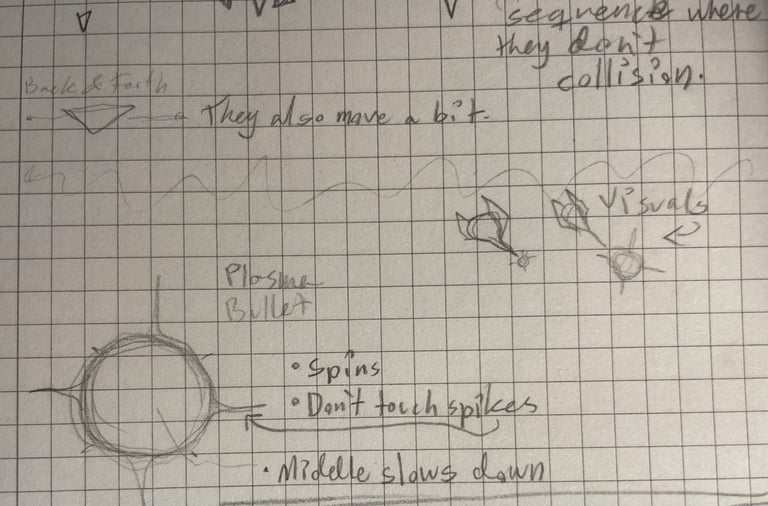 sequence where
they don't
collision.
Back & Forth
They also move a bit.
Visuals
Plasma
Bullet
• Spins
• Don't touch spikes
• Middle slows down